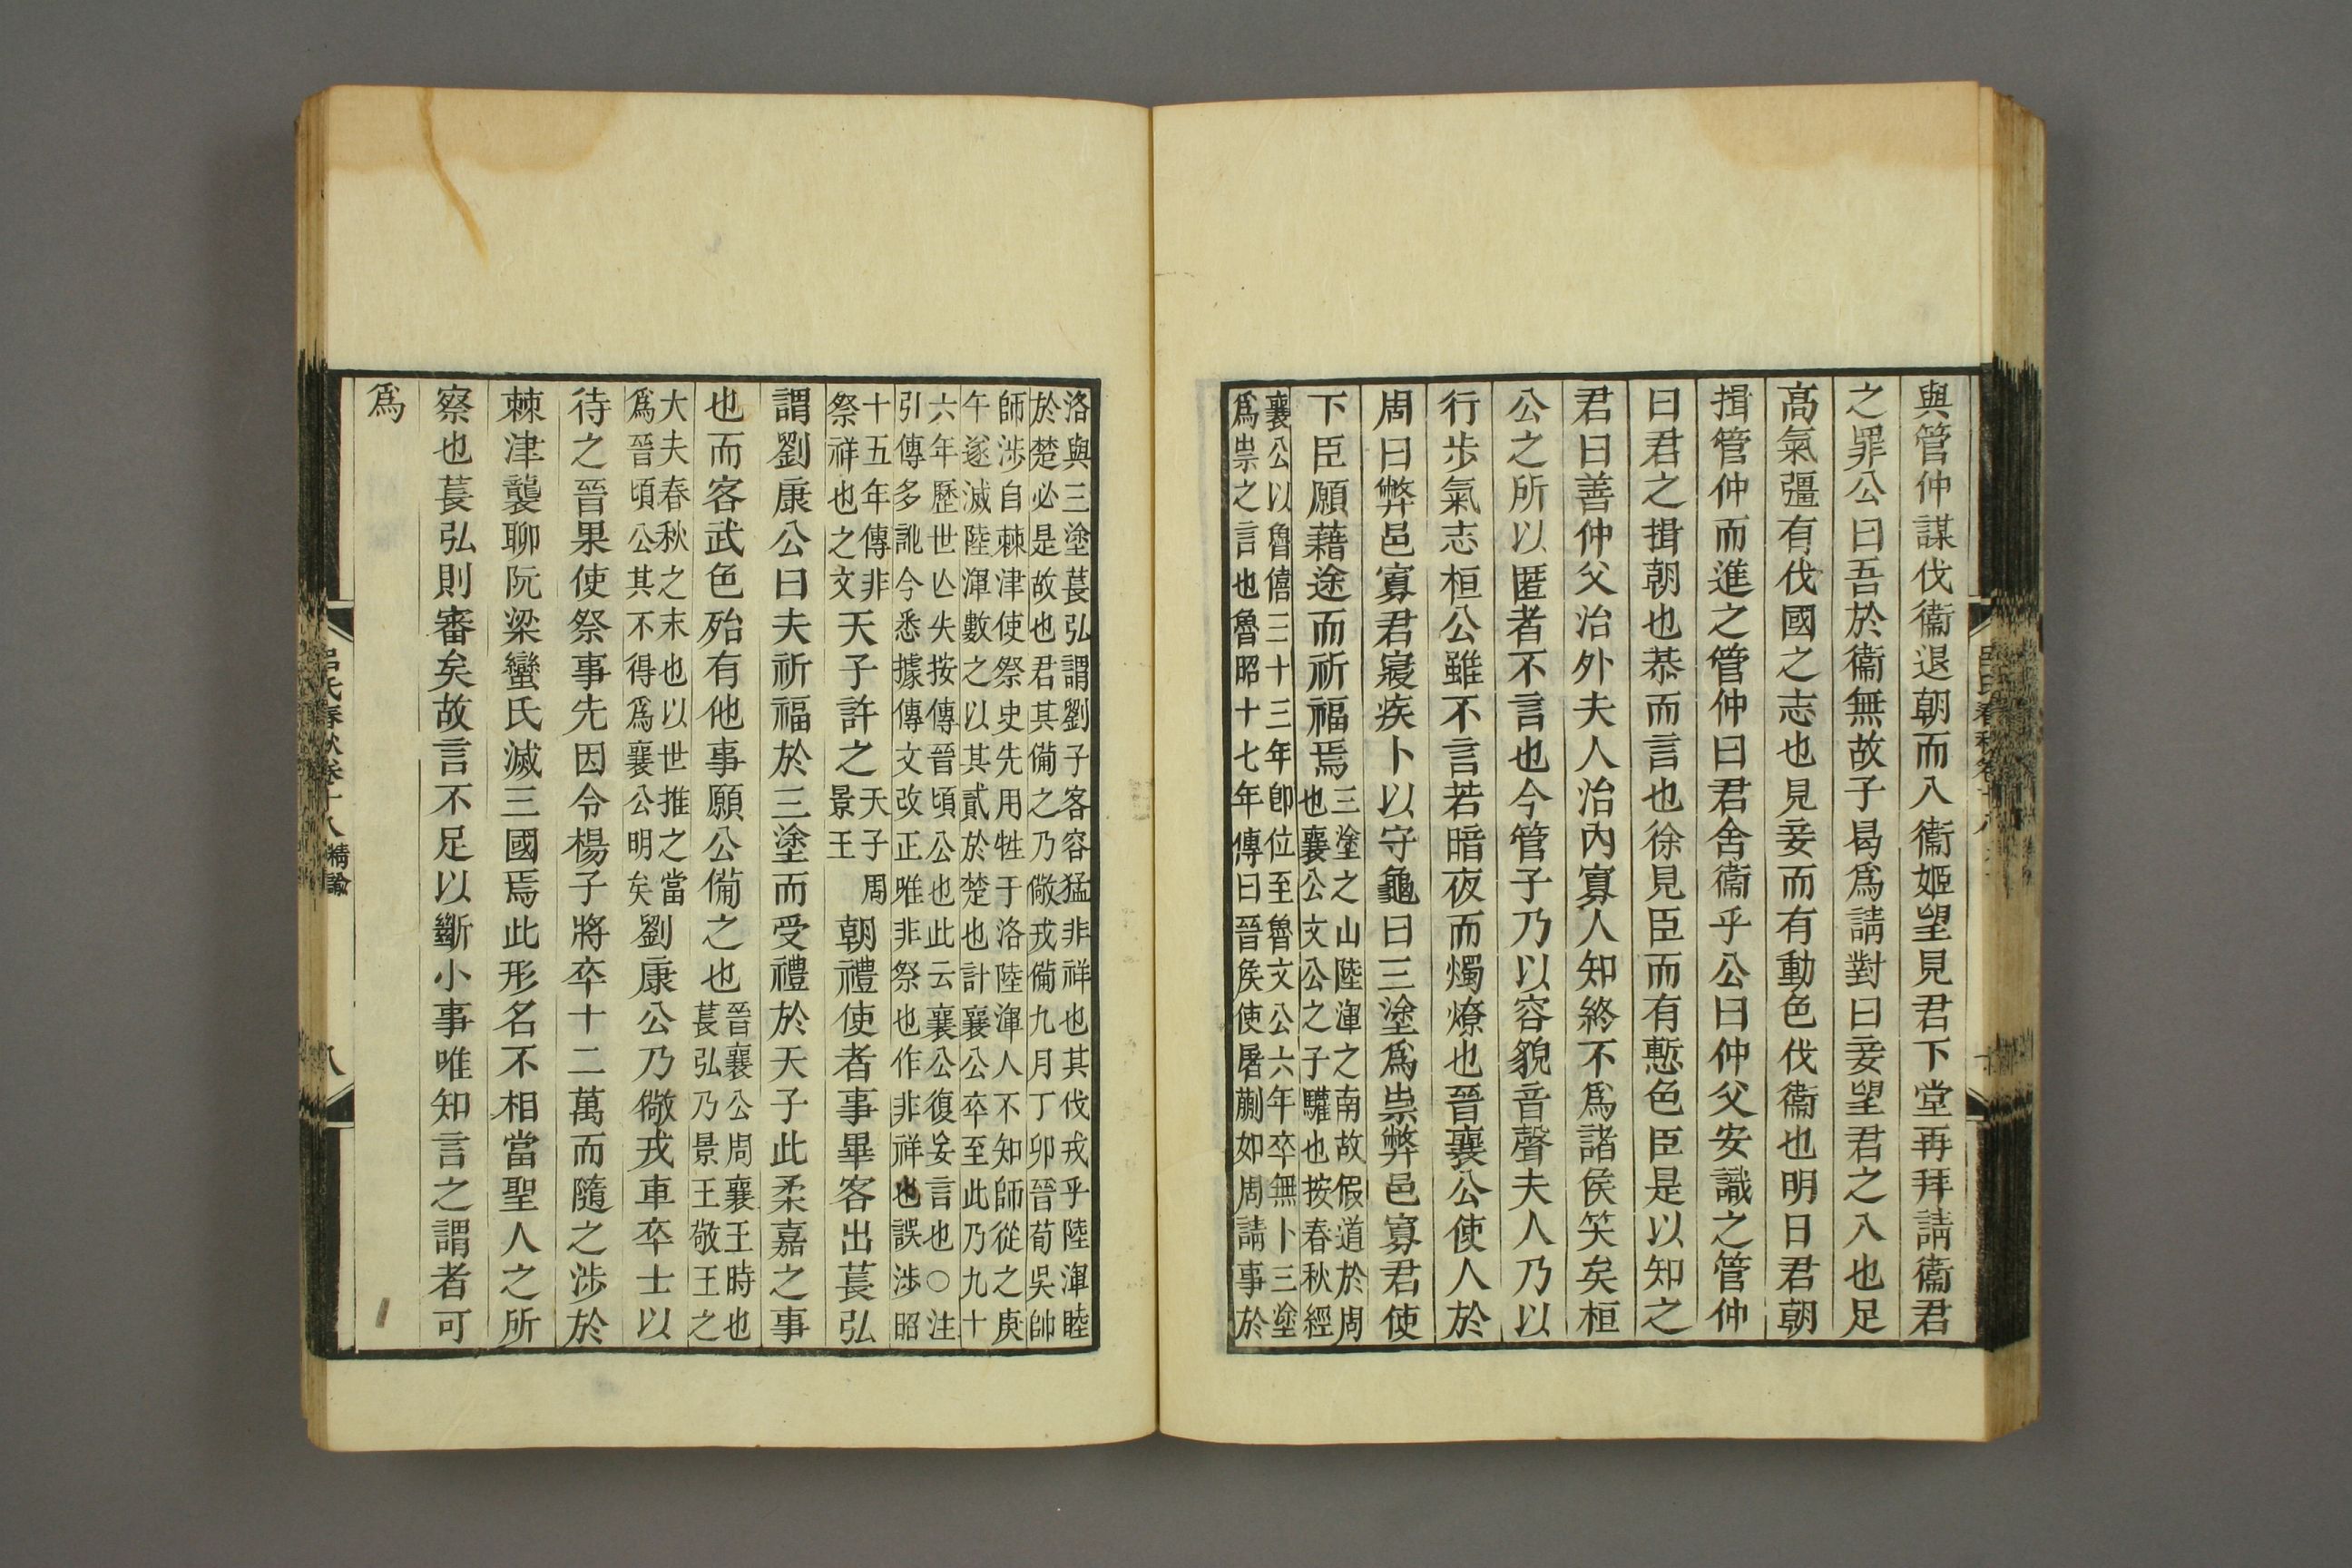 與管仲謀伐衞退朝而入衞姬望見君下堂再拜請衞君
之罪公曰吾於衞無故子曷爲請對曰妾望君之入也足
高氣彊有伐國之志也見妾而有動色伐衞也明日君朝
揖管仲而進之管仲曰君舍衞乎公曰仲父安識之管仲
曰君之揖朝也恭而言也徐見臣而有慙色臣是以知之
君曰善仲父治外夫人治內寡人知終不爲諸侯笑矣桓
公之所以匿者不言也今管子乃以容貌音聲夫人乃以
行步氣志桓公雖不言若暗夜而燭燎也晉襄公使人於
周曰弊邑寡君寢疾卜以守龜曰三塗爲祟弊邑寡君使
下臣願藉途而祈福焉三塗之山陸渾之南故假道於周
也襄公文公之子驩也按春秋經
襄公以魯僖三十三年卽位至魯文公六年卒無卜三塗
爲祟之言也魯昭十七年傳曰晉侯使屠蒯如周請事於
洛與三塗萇弘謂劉子客容猛非祥也其伐戎乎陸渾睦
於楚必是故也君其備之乃儆戎備九月丁卯晉荀吳帥
師涉自棘津使祭史先用牲于洛陸渾人不知師從之庚
午遂滅陸渾數之以其貳於楚也計襄公卒至此乃九十
六年歷世亾失按傳晉頃公也此云襄公復妄言也○注
引傳多訛今悉據傳文改正唯非祭也作非祥也誤涉昭
十五年傳非
祭祥也之文天子許之天子周
景王朝禮使者事畢客出萇弘
謂劉康公曰夫祈福於三塗而受禮於天子此柔嘉之事
也而客武色殆有他事願公備之也晉襄公周襄王時也
萇弘乃景王敬王之
大夫春秋之末也以世推之當
爲晉頃公其不得爲襄公明矣劉康公乃儆戎車卒士以
待之晉果使祭事先因令楊子將卒十二萬而隨之涉於
棘津襲聊阮梁蠻氏滅三國焉此形名不相當聖人之所
察也萇弘則審矣故言不足以斷小事唯知言之謂者可
爲
呂氏春秋卷十八 精諭
八